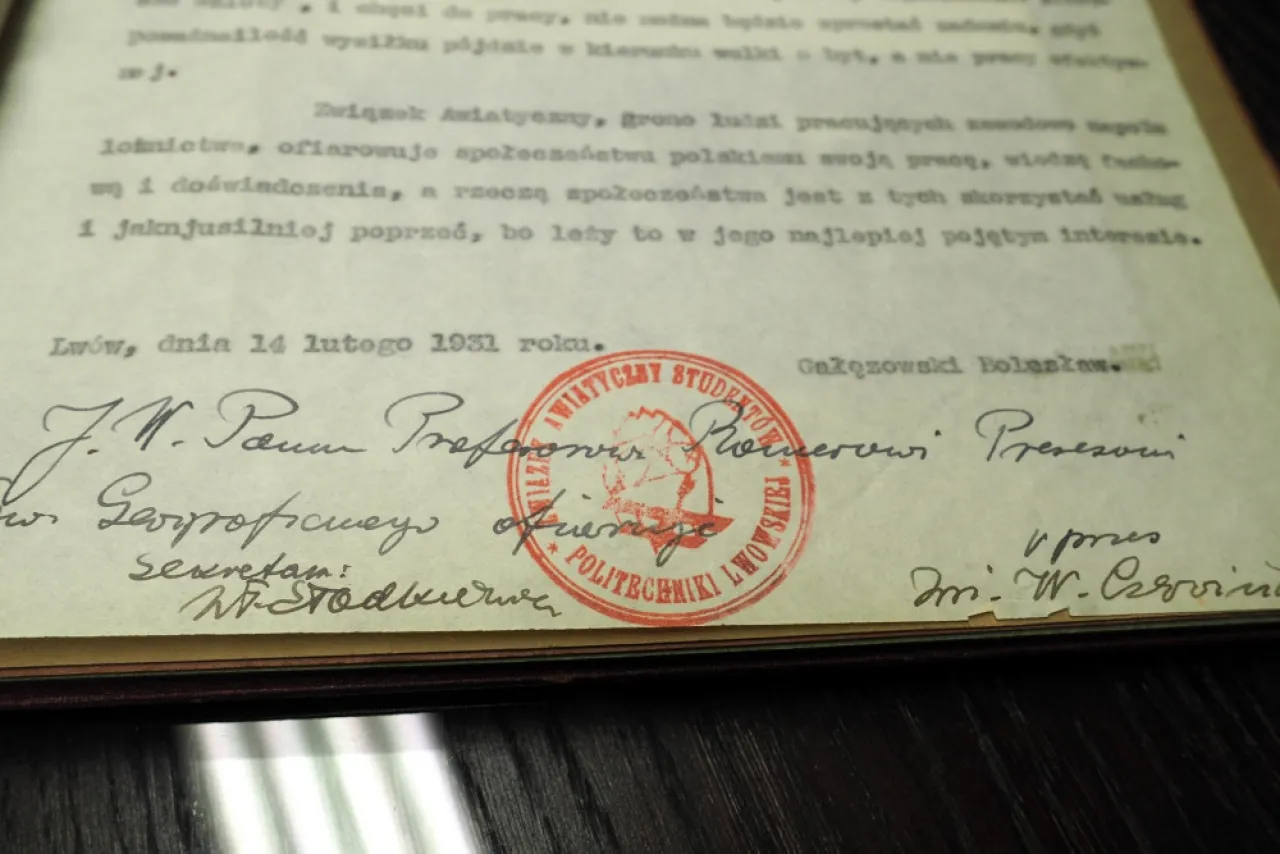 i chęci do pracy, nie można będzie sprostać zadaniu, gdyż
pomażniłość wysiłku pójdzie w kierunku walki o byt, a nie pracy efektyw-
nej.
Związek Awiatyczny, grono ludzi pracujących zawodowo
lotnictwa, ofiarowuje społeczeństwu polskiemu swoją pracę, wiedzę facho-
wą i doświadczenia, a rzeczą społeczeństwa jest z tych skorzystać usług
i jaknjusilniej poprzeć, bo leży to w jego najlepiej pojętym interesie.
Lwów, dnia 14 lutego 1931 roku.
Gałęzowski Bolesław.
ZWIĄZEK AWIATYCZNY STUDENTÓW
* POLITECHNIKI LWOWSKIEJ *
J. W. Panu Profesorowi Romerowi Prezesowi
Geograficznego ofiaruje
Sekretarz:
v prezes
W.